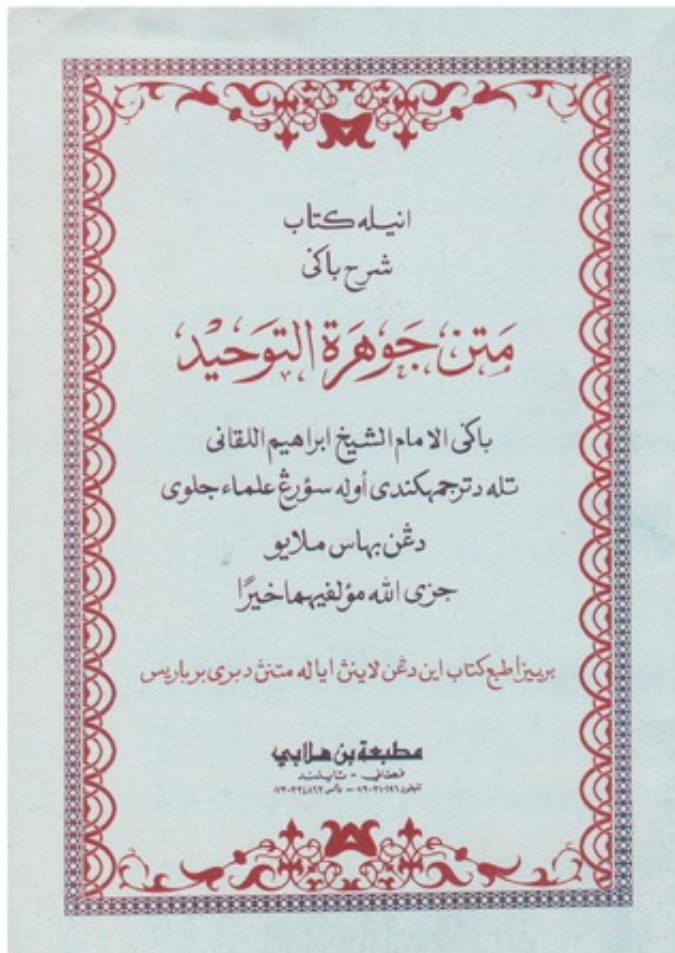 انيله كتاب
شرح باکی
مَتن جَوهَرة التوَحيْد
باکی الامام الشيخ ابراهيم اللقانی
تله دترجمهکندی أوله سؤرڠ علماء جاوی
دڠن بهاس ملايو
جزى الله مؤلفيهما خيرًا
بربيزا طبع كتاب اين دڠن لاينڽ اياله متنڽ دبری برباريس
مطبعة بن هلابي
فطاني - تايلند